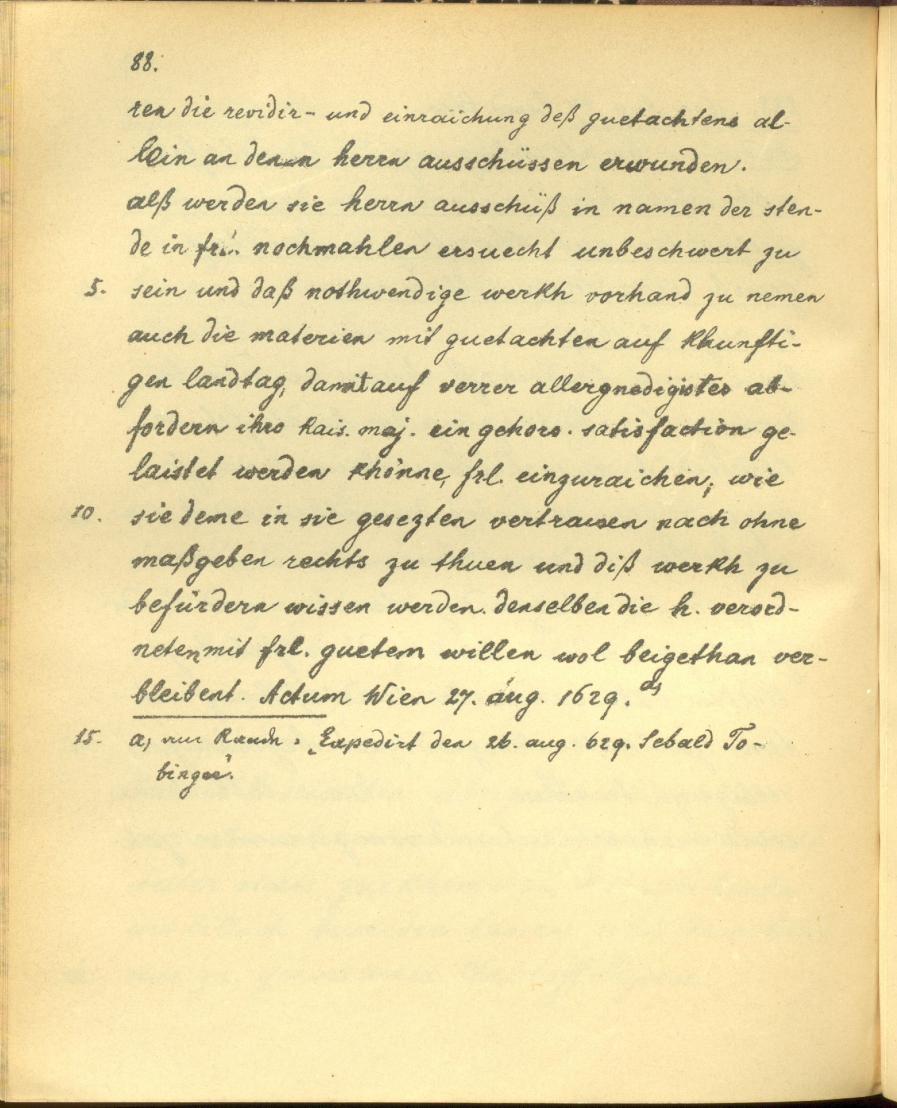 88.
ren die revidir- und einraichung deß guetachtens al-
lein an denen herrn ausschüssen erwunden.
alß werden sie herrn ausschüß in namen der sten-
de in frl. nochmahlen ersuecht unbeschwert zu
5. sein und daß nothwendige werkh vorhand zu nemen
auch die materien mit guetachten auf khunfti-
gen landtag, damit auf verrer allergnedigistes ab-
fordern ihro kais. maj. ein gehors. satisfaction ge-
laistet werden khönne, frl. einzuraichen; wie
10. sie deme in sie gesezten vertrauen nach ohne
maßgeben rechts zu thuen und diß werkh zu
befürdern wissen werden. denselben die h. verord-
neten mit frl. guetem willen wol beigethan ver-
bleibent. Actum Wien 27. aug. 1629. a)
15. a) am Rande: „Expedirt den 26. aug. 629. Sebald To-
binger".